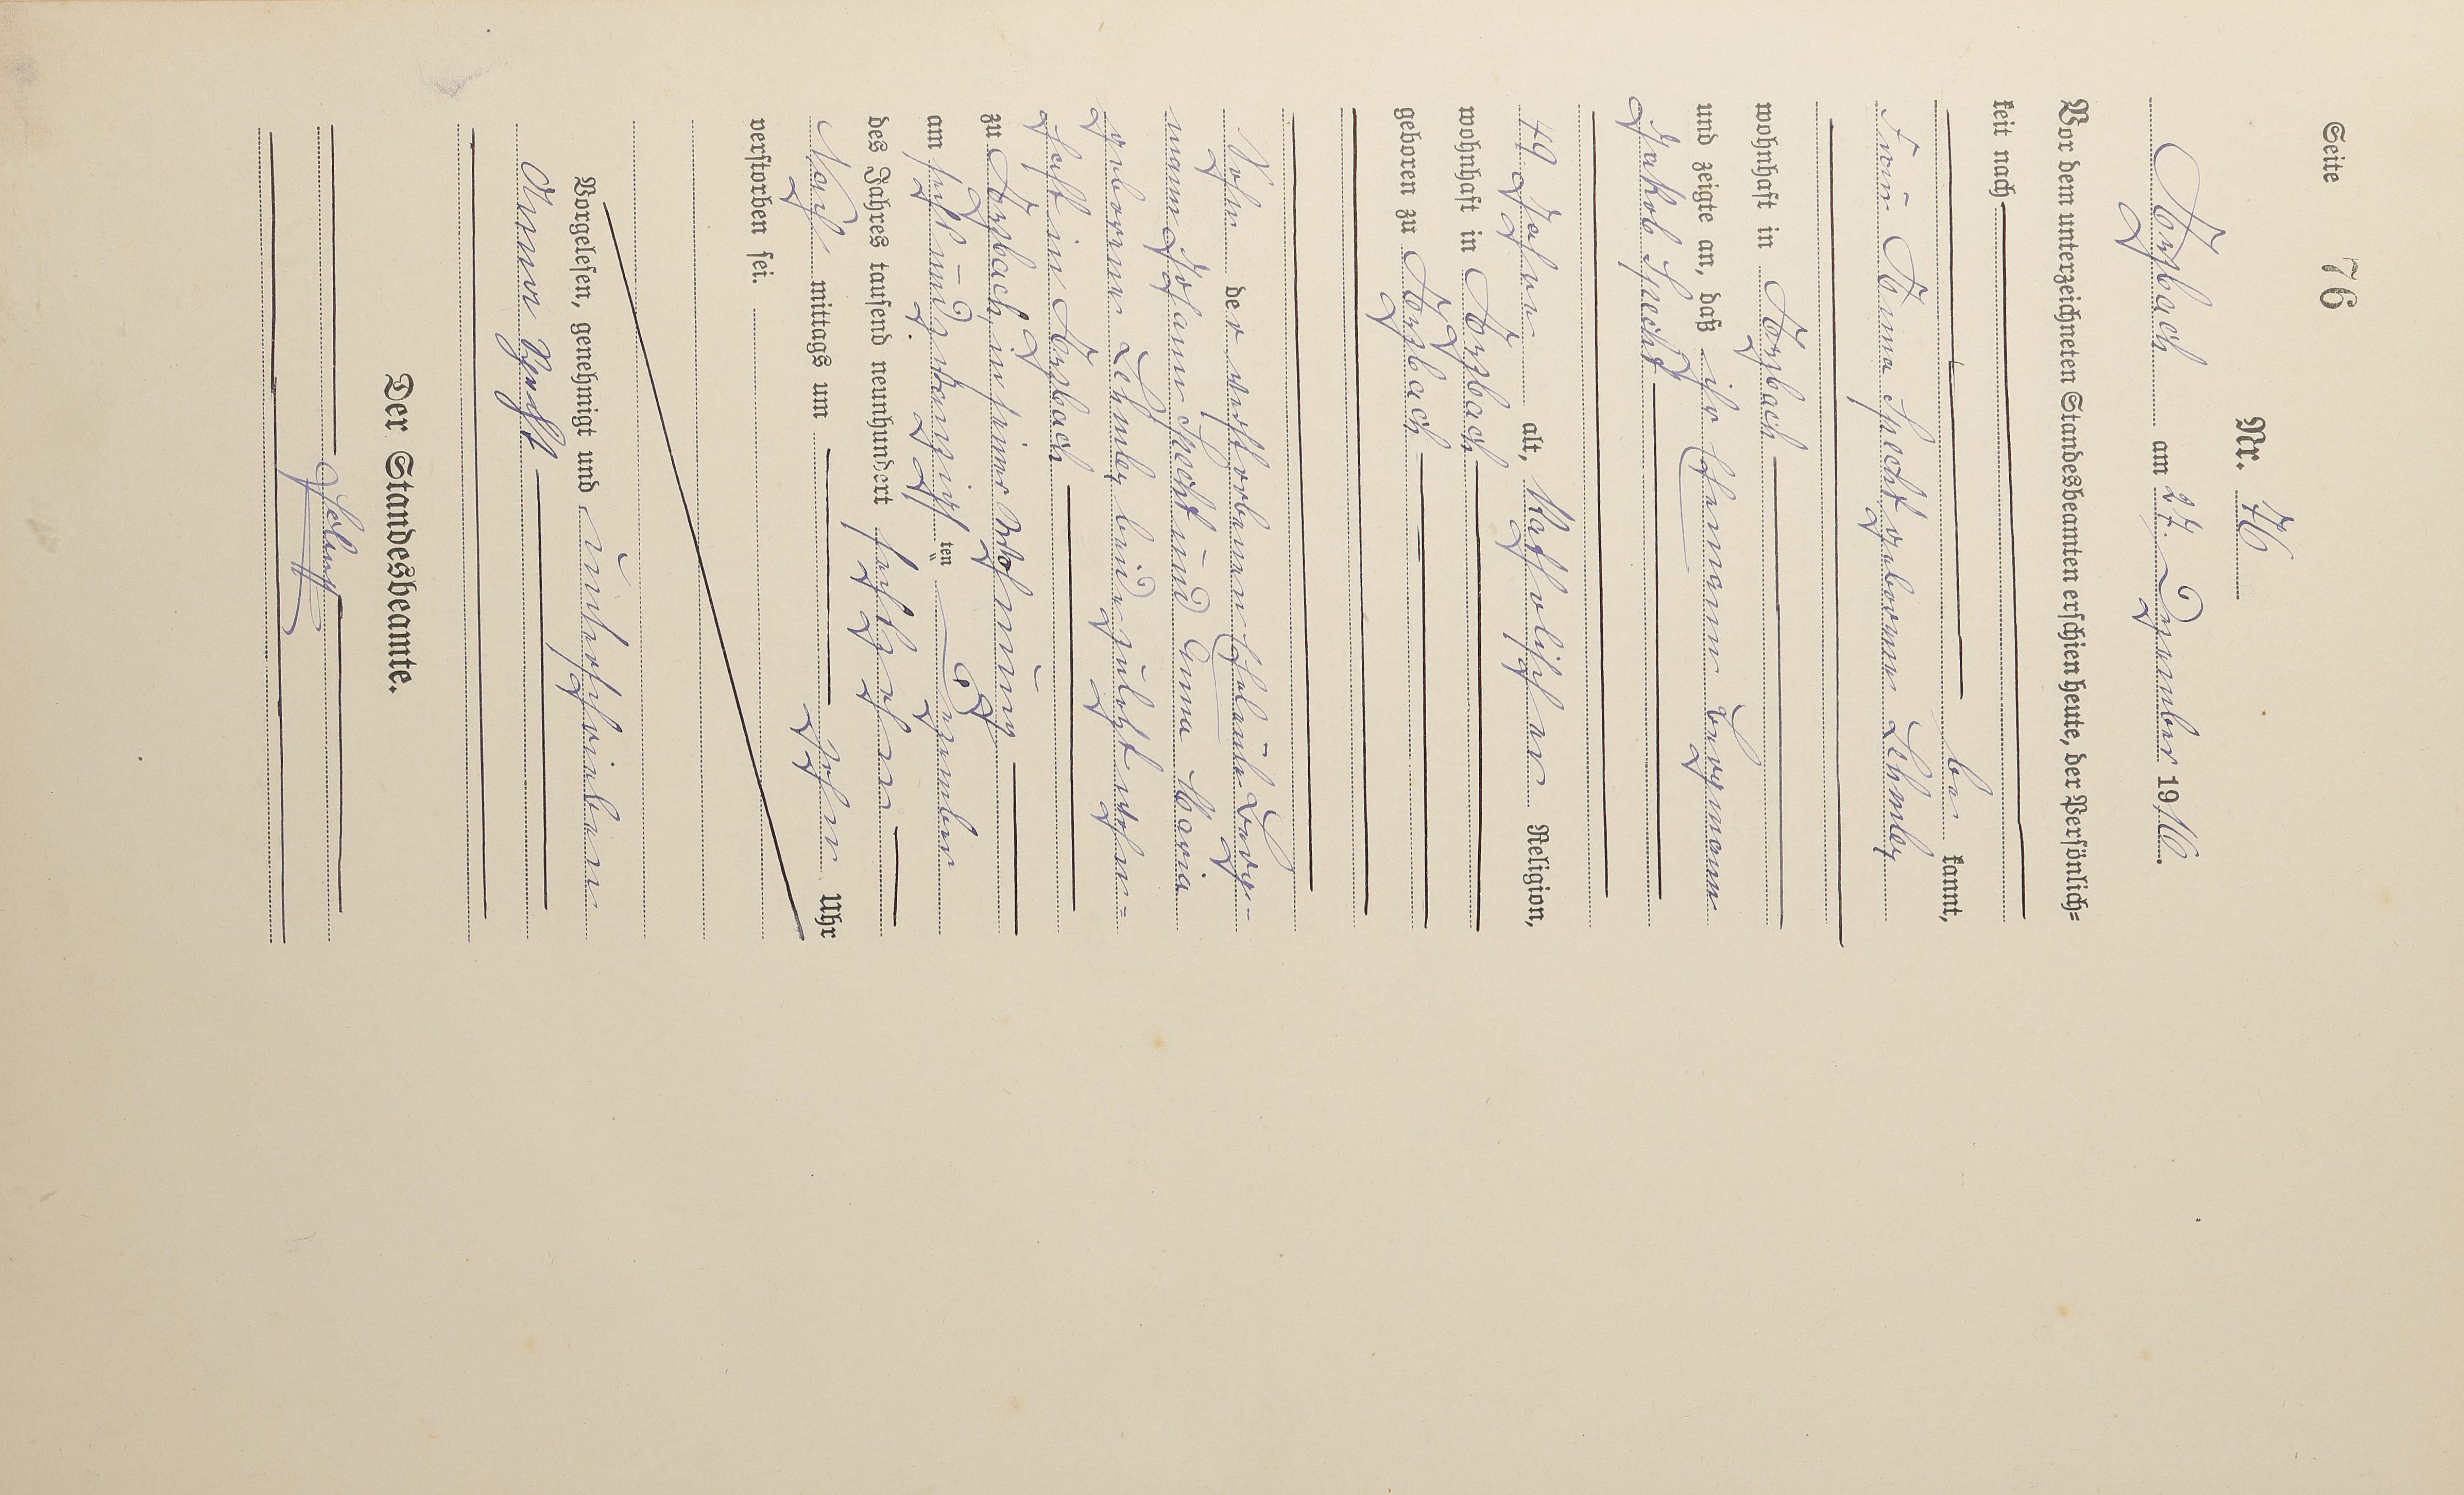 Seite 76
Nr. 76
Arzbach am 27. Dezember 1916.
Vor dem unterzeichneten Standesbeamten erschien heute, der Persönlich=
keit nach
be kannt,
Anna Specht geborene Lehmler
wohnhaft in Arzbach
und zeigte an, daß ihr Ehemann Bergmann
Jakob Specht
49 Jahre alt, katholischer Religion,
wohnhaft in Arzbach
geboren zu Arzbach
Sohn der verstorbenen Eheleute Berg-
mann Johann Specht und Anna Maria
geborene Lehmler beide zuletzt wohn=
haft in Arzbach
zu Arzbach, in seiner Wohnung
am sechsundzwanzigsten ten Dezember
des Jahres tausend neunhundert sechszehn
Nach mittags um zehn Uhr
verstorben sei.
Vorgelesen, genehmigt und unterschrieben
Anna Specht
Der Standesbeamte.